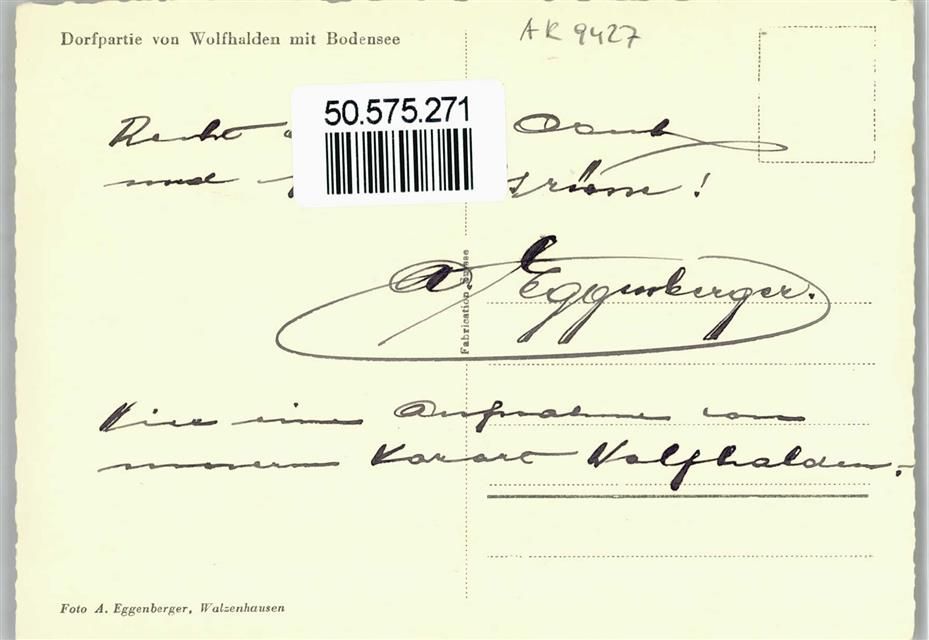 Dorfpartie von Wolfhalden mit Bodensee
AR 9427
50.575.271
Recht Dank
und grüsse!
A. Eggenberger.
Fabrication Suisse
Hier eine Aufnahme von
unserm Kurort Wolfhalden.
Foto A. Eggenberger, Walzenhausen